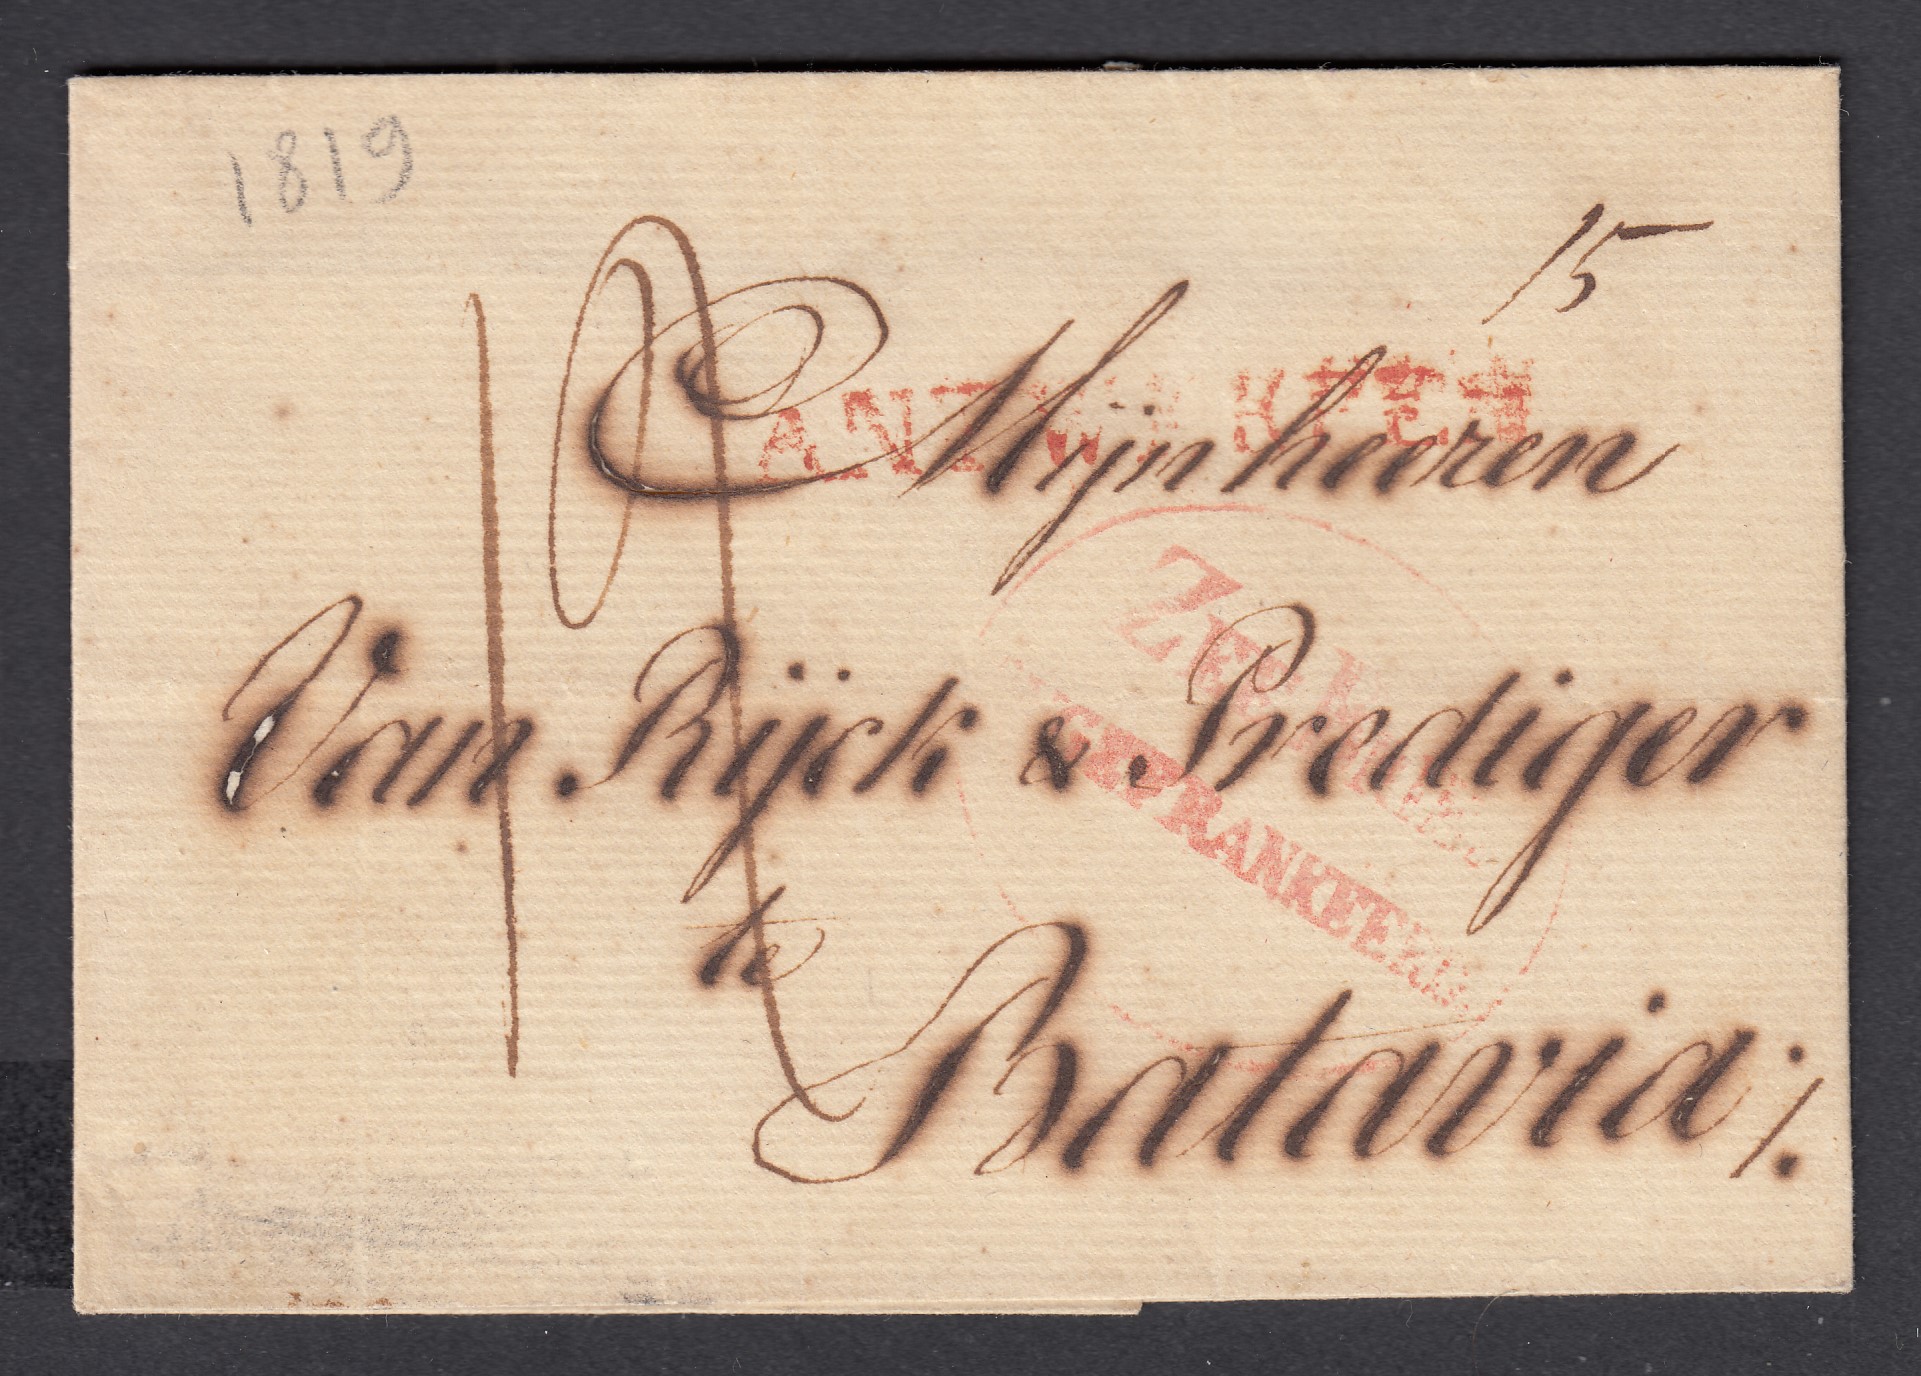 1819
15
ANTWERPEN
Mijnheeren
Van Rijck & Prediger
te
Batavia ./.
ZEE
GEFRANKEERD